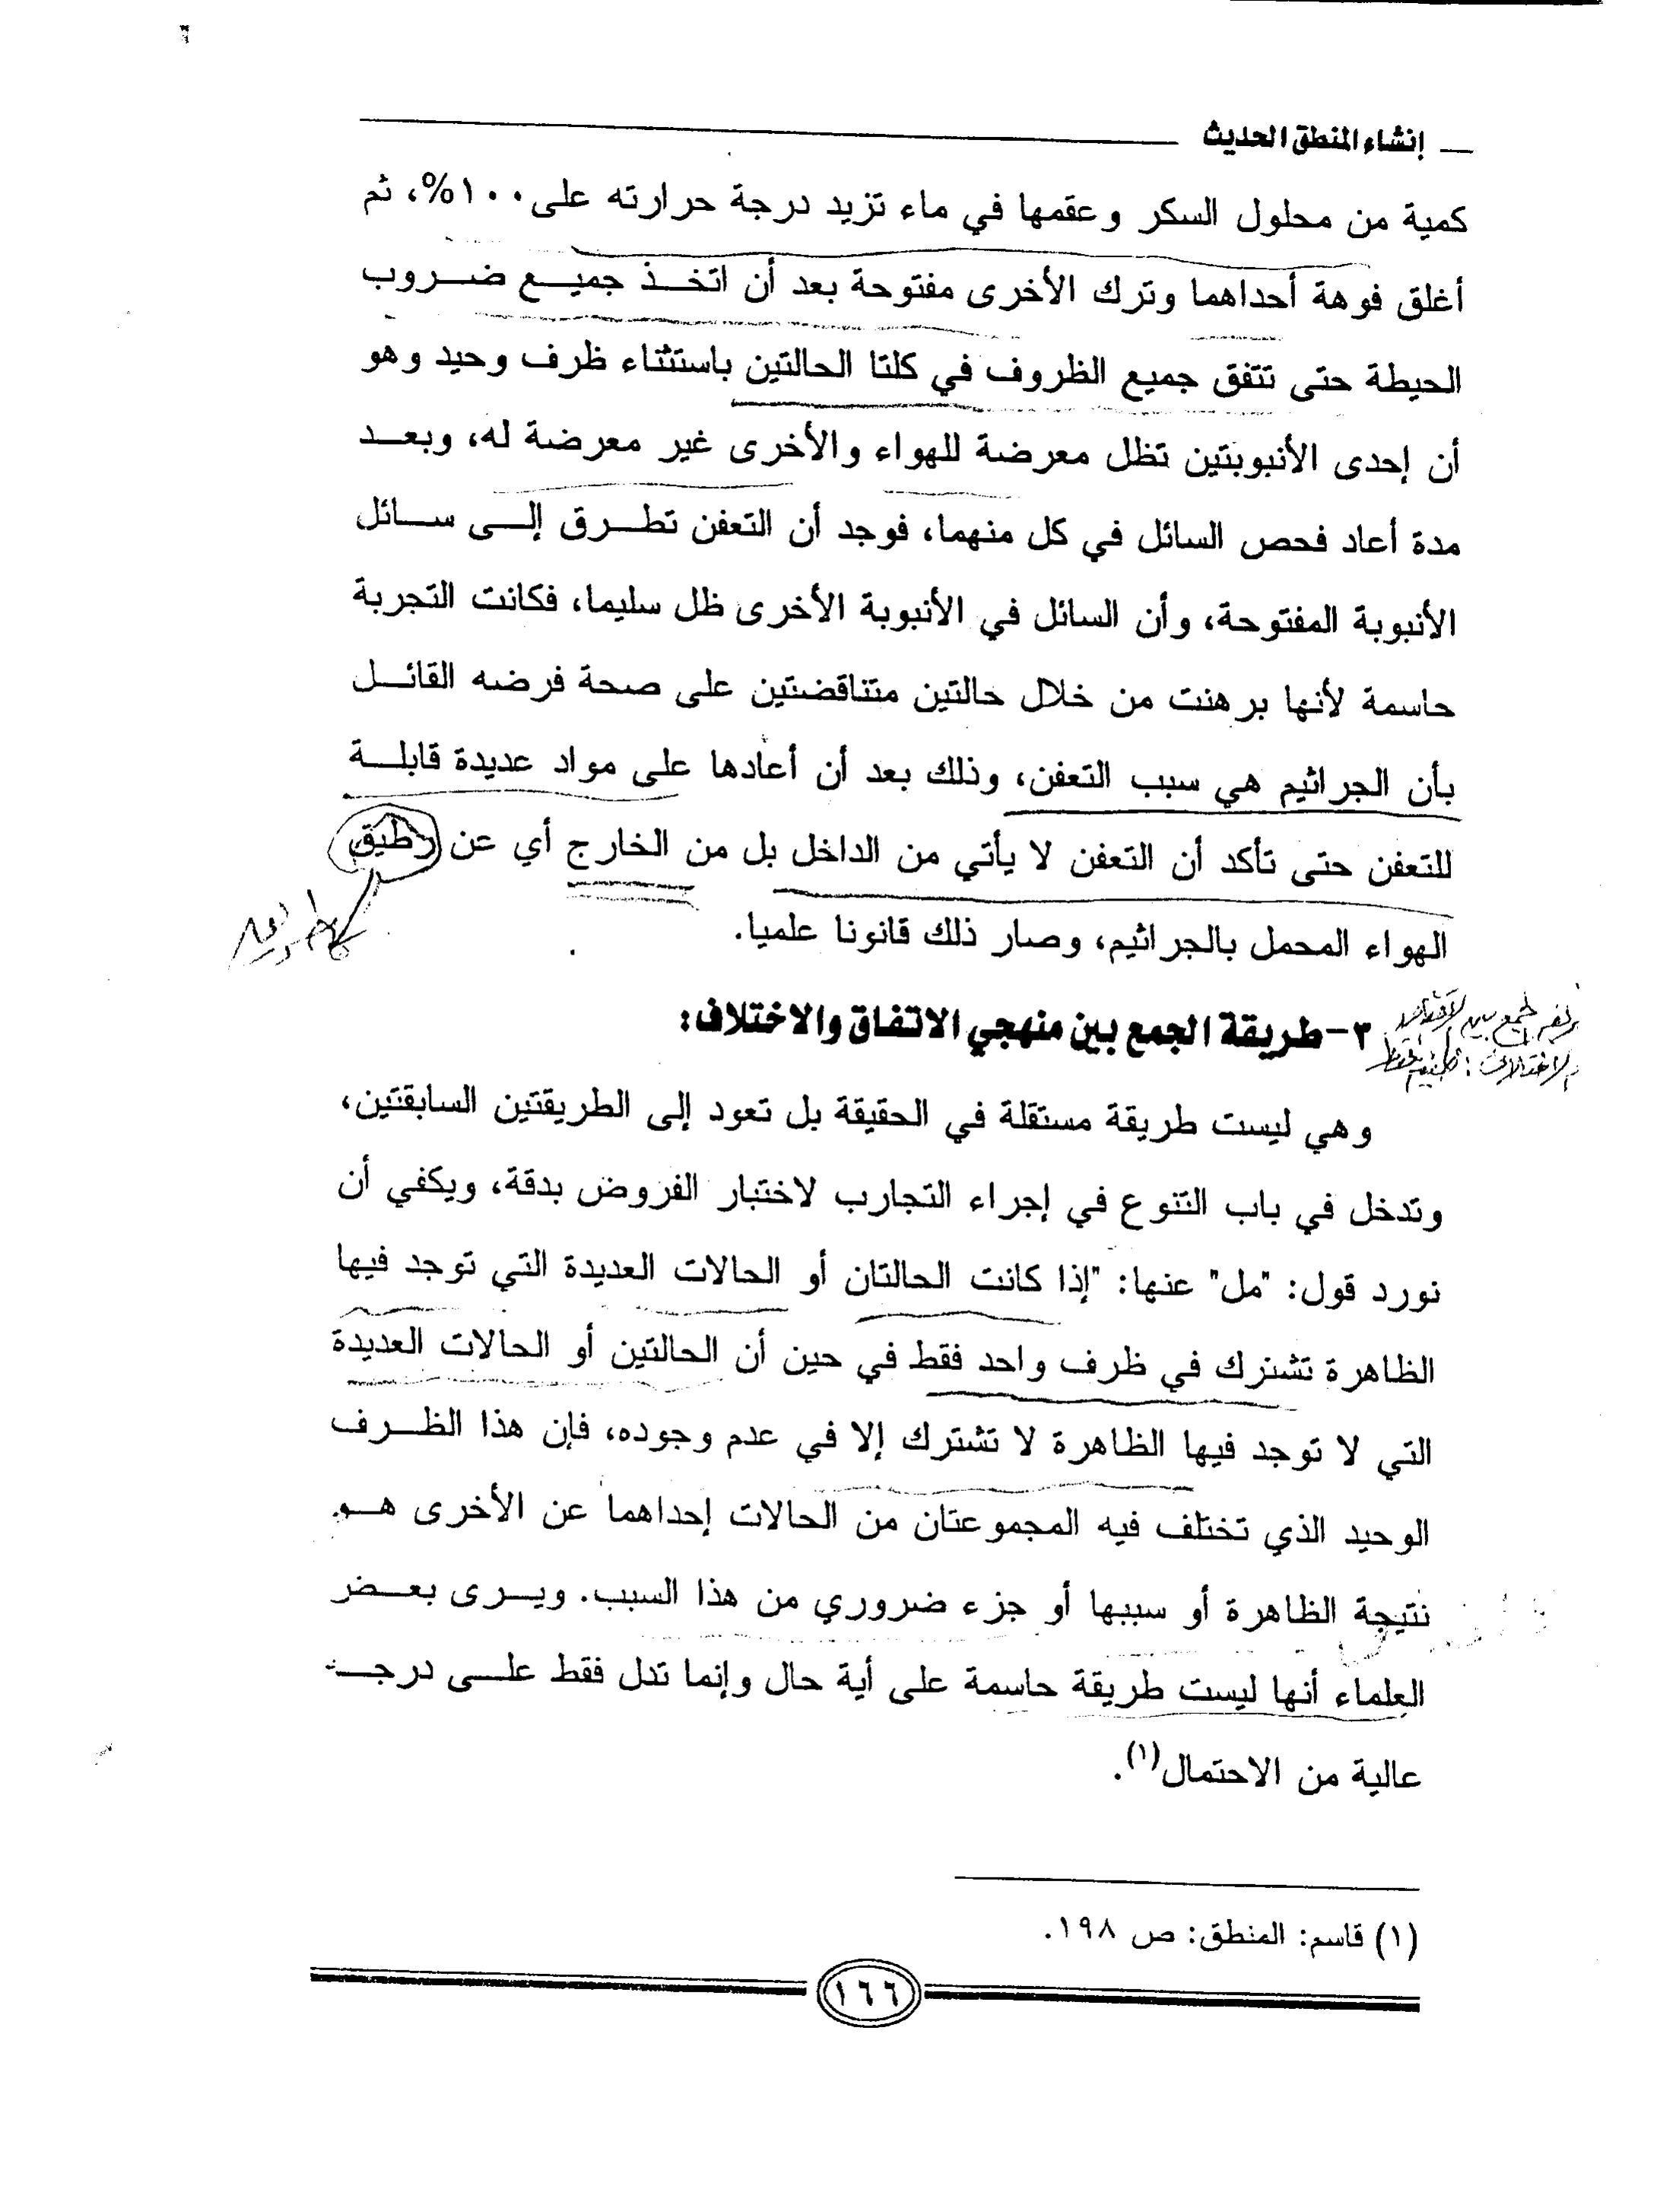 إنشاء المنطق الحديث
كمية من محلول السكر وعقمها في ماء تزيد درجة حرارته على ١٠٠%، ثم
أغلق فوهة أحداهما وترك الأخرى مفتوحة بعد أن اتخذ جميع ضروب
الحيطة حتى تتفق جميع الظروف في كلتا الحالتين باستثناء ظرف وحيد وهو
أن إحدى الأنبوبتين تظل معرضة للهواء والأخرى غير معرضة له، وبعد
مدة أعاد فحص السائل في كل منهما، فوجد أن التعفن تطرق إلى سائل
الأنبوبة المفتوحة، وأن السائل في الأنبوبة الأخرى ظل سليما، فكانت التجربة
حاسمة لأنها برهنت من خلال حالتين متناقضتين على صحة فرضه القائل
بأن الجراثيم هي سبب التعفن، وذلك بعد أن أعادها على مواد عديدة قابلة
للتعفن حتى تأكد أن التعفن لا يأتي من الداخل بل من الخارج أي عن رطيق
الهواء المحمل بالجراثيم، وصار ذلك قانونا علميا.
٣-طريقة الجمع بين منهجي الاتفاق والاختلاف:
وهي ليست طريقة مستقلة في الحقيقة بل تعود إلى الطريقتين السابقتين،
وتدخل في باب التنوع في إجراء التجارب لاختبار الفروض بدقة، ويكفي أن
نورد قول: "مل" عنها: "إذا كانت الحالتان أو الحالات العديدة التي توجد فيها
الظاهرة تشترك في ظرف واحد فقط في حين أن الحالتين أو الحالات العديدة
التي لا توجد فيها الظاهرة لا تشترك إلا في عدم وجوده، فإن هذا الظرف
الوحيد الذي تختلف فيه المجموعتان من الحالات إحداهما عن الأخرى هو
نتيجة الظاهرة أو سببها أو جزء ضروري من هذا السبب. ويرى بعض
العلماء أنها ليست طريقة حاسمة على أية حال وإنما تدل فقط على درجة
عالية من الاحتمال(١).
(١) قاسم: المنطق: ص ١٩٨.
١٦٦